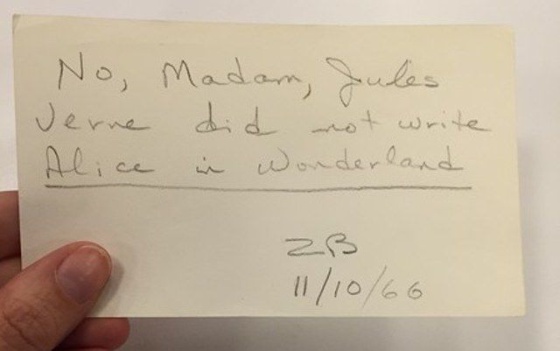 No, Madam, Jules
Verne did not write
Alice in Wonderland
ZB
11/10/66